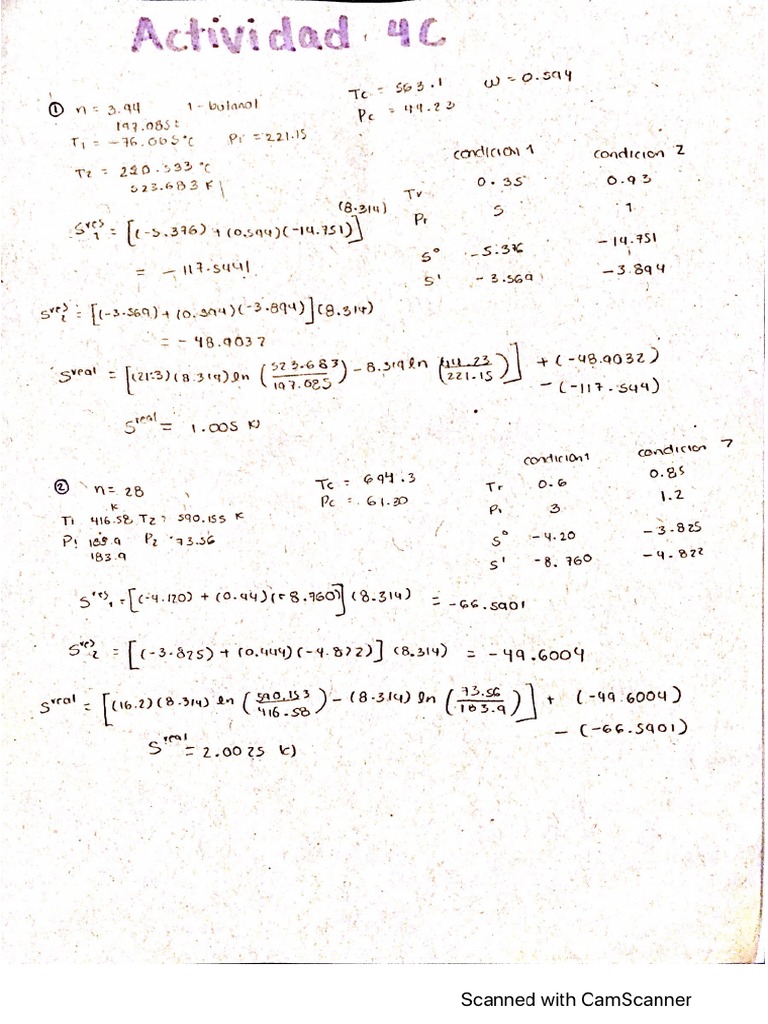 Actividad 4C
① n = 3.94 1-butanol Tc = 563.1 ω = 0.594
197.085 Pc = 44.23
T1 = -76.065°C P1 = 221.15
T2 = 250.533 °C
523.683 K
condicion 1 condicion 2
Tr 0.35 0.93
Pr 5 1
S° -5.376 -14.751
S' -3.569 -3.894
S1^res = [(-5.376) + (0.594)(-14.751)] (8.314)
= -117.5441
S2^res = [(-3.569) + (0.594)(-3.894)] (8.314)
= -48.9032
S^real = [(21.3)(8.314) ln (523.683/197.085) - 8.314 ln (44.23/221.15)] + (-48.9032)
- (-117.544)
S^real = 1.005 KJ
② n = 28 Tc = 694.3
Pc = 61.30
T1 416.58 K T2 = 590.155 K
P1 183.9 P2 = 73.56
183.9
condicion 1 condicion 2
Tr 0.6 0.85
Pr 3 1.2
S° -4.20 -3.825
S' -8.760 -4.822
S^res1 = [(-4.120) + (0.44)(-8.760)] (8.314) = -66.5901
S^res2 = [(-3.825) + (0.444)(-4.822)] (8.314) = -49.6004
S^real = [(16.2)(8.314) ln (590.153/416.58) - (8.314) ln (73.56/183.9)] + (-49.6004)
- (-66.5901)
S^real = 2.0025 KJ
Scanned with CamScanner